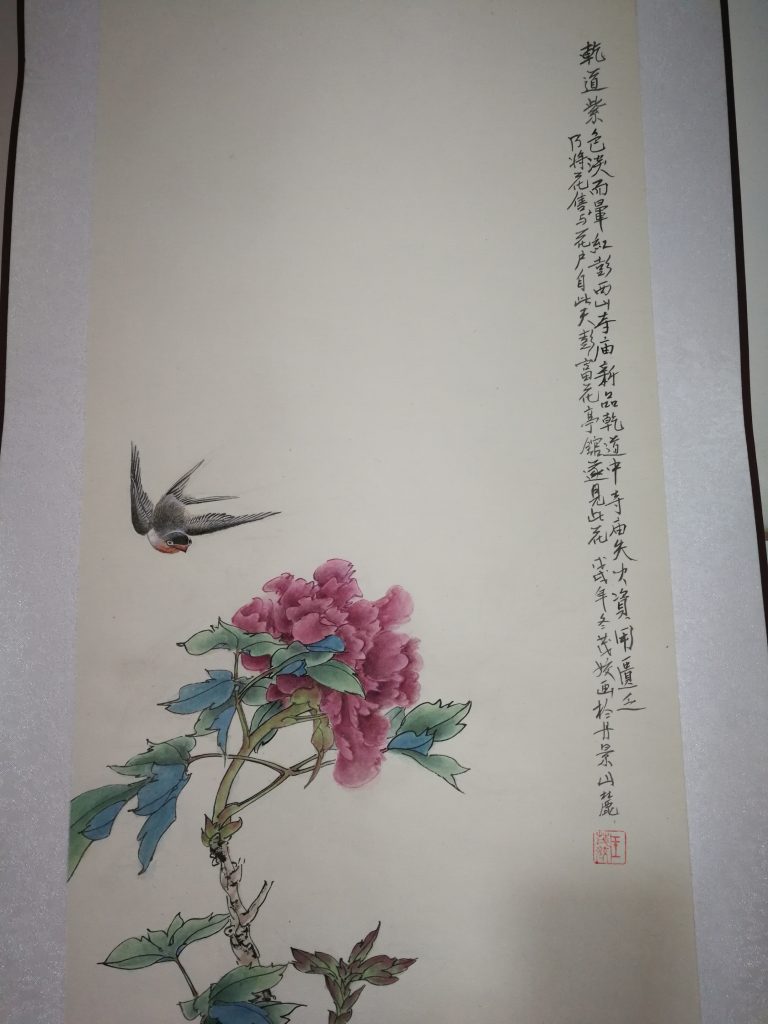 乾道紫色淡而暈紅彭西山寺庙新品乾道中寺庙失火資用匱乏
乃将花售与花户自此天彭富花亭館遂見此花 戊戌年冬茂姣画於丹景山麓